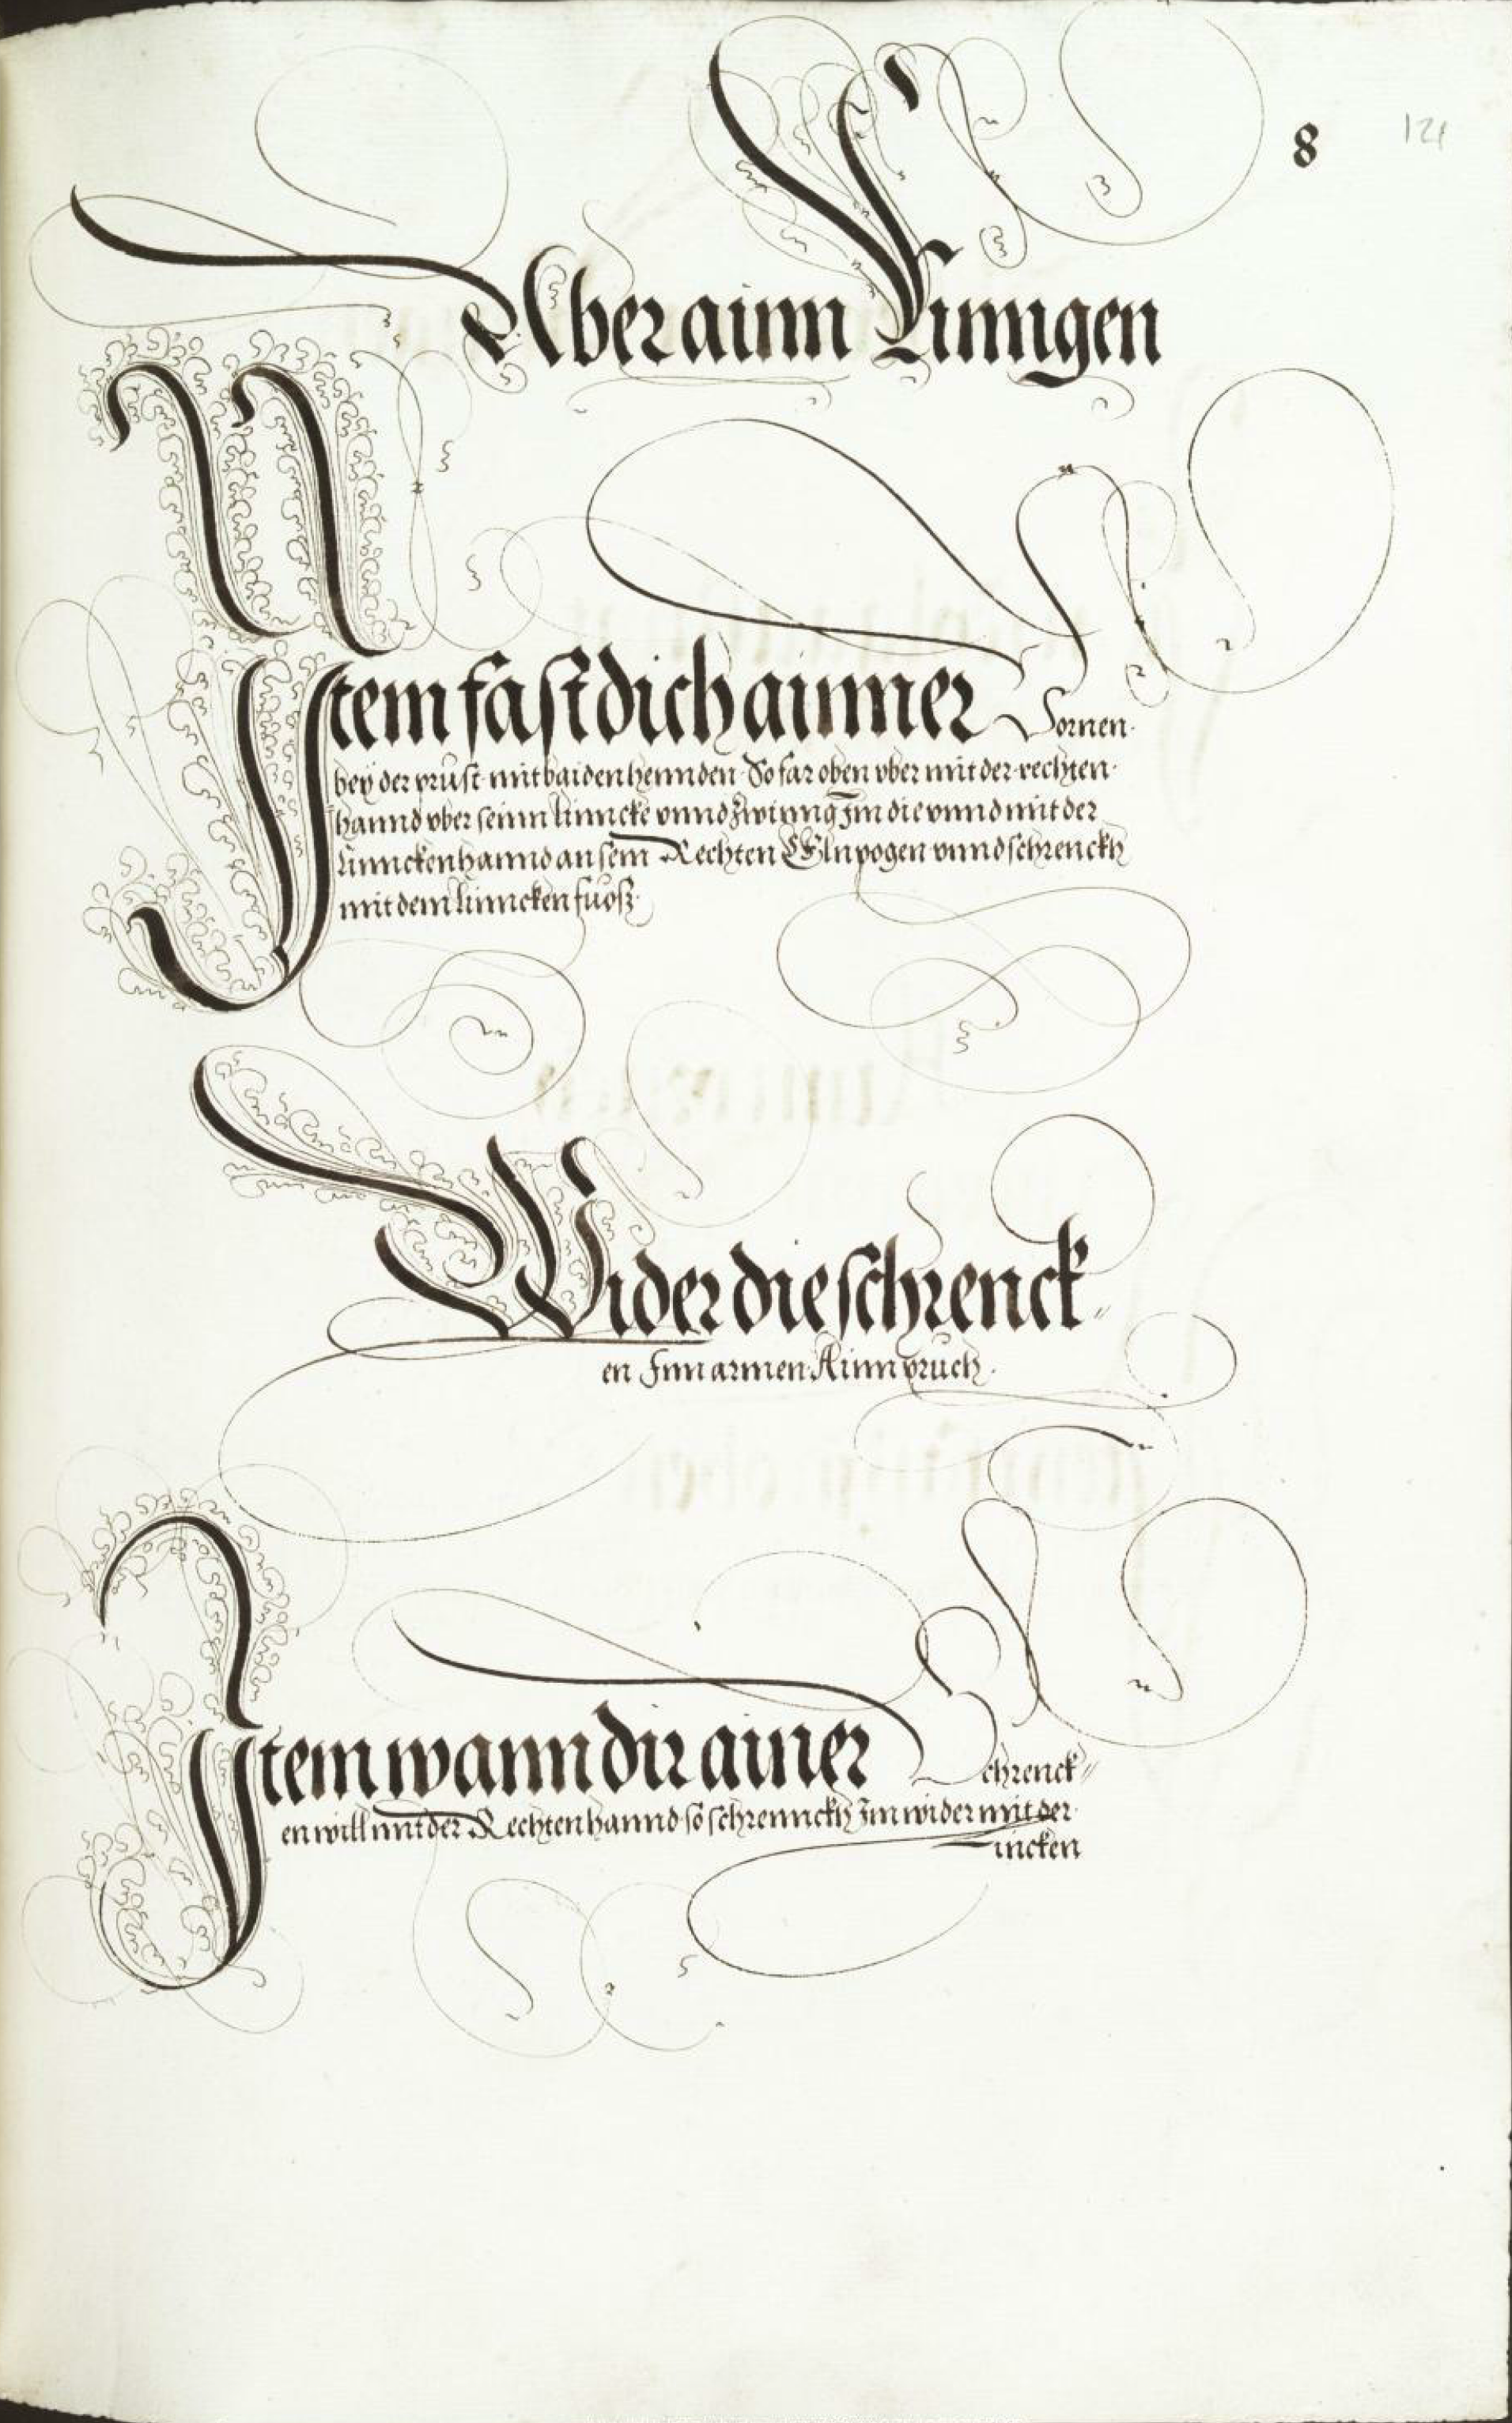 8 121
Aber ainn Rinngen
Item fast dich ainner Vornen
bey der prust mit baiden hennden So far oben vber mit der rechten
hannd vber seinn linncke vnnd zwinng Im die vnnd mit der
Linncken hannd an sein Rechten Elnpogen vnnd schrenckh
mit dem linncken fuosz
Wider die schrenck
en Inn armen Ainn pruch
Item wann dir ainer Schrenck
en will mit der Rechten hannd so schrennckh Im wider mit der
incken